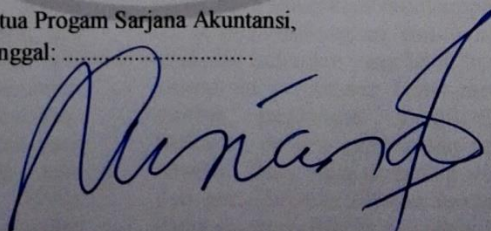 tua Progam Sarjana Akuntansi,
nggal: ............................